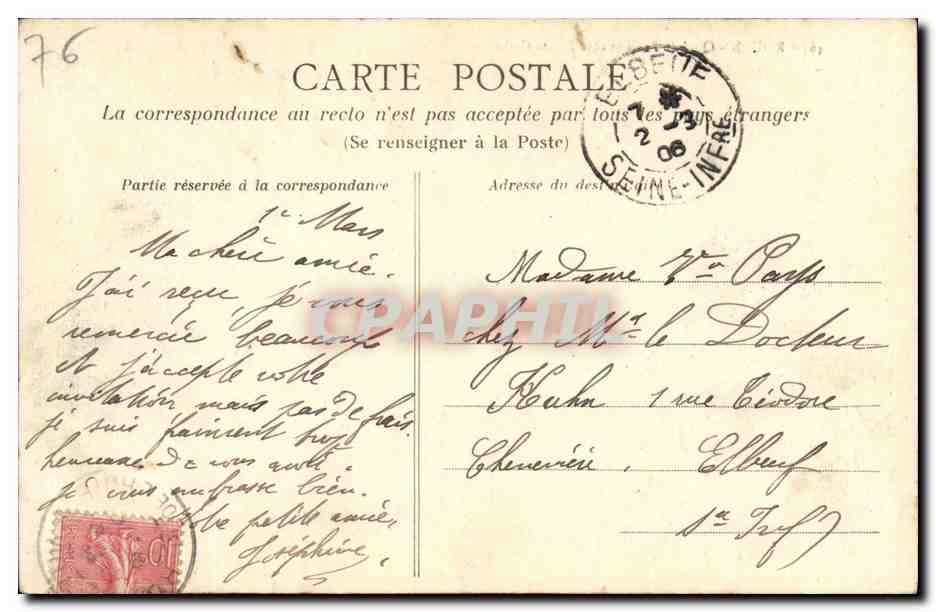 76
CARTE POSTALE
La correspondance au recto n'est pas acceptée par tous les pays étrangers
(Se renseigner à la Poste)
ELBEUF
7
2 3
06
SEINE-INFRE
Partie réservée à la correspondance
Adresse du destinataire
1er Mars
Ma chère amie.
J'ai reçu, je vous
remercie beaucoup
et j'accepte votre
invitation mais pas de frais.
je suis vraiment trop
heureuse de vous avoir.
je vous embrasse bien.
Votre petite amie,
Joséphine
Madame Vve Pays
chez Mr le Docteur
Kuhn 1 rue Téodore
Chenevière, Elbeuf
Sne Infre
CPAPHIL
10